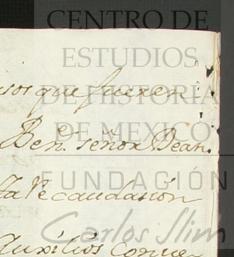 CENTRO DE
ESTUDIOS
DE HISTORIA
DE MEXICO
FUNDACIÓN
Carlos Slim
sos que fueren
Ben. señor Dean.
la Recaudasion
auxilios